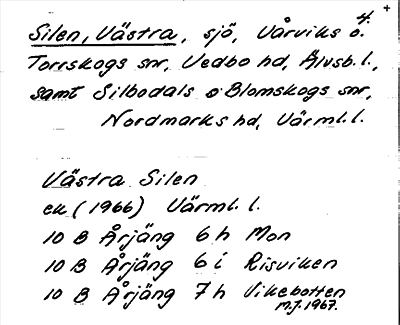 4. +
Silen, Västra, sjö, Vårviks o.
Torrskogs snr, Vedbo hd, Älvsb. l.,
samt Silbodals o Blomskogs snr,
Nordmarks hd, Värml. l.
Västra Silen
ek (1966) Värml. l.
10 B Årjäng 6 h Mon
10 B Årjäng 6 i Risviken
10 B Årjäng 7 h Vikebotten
M.J. 1967.